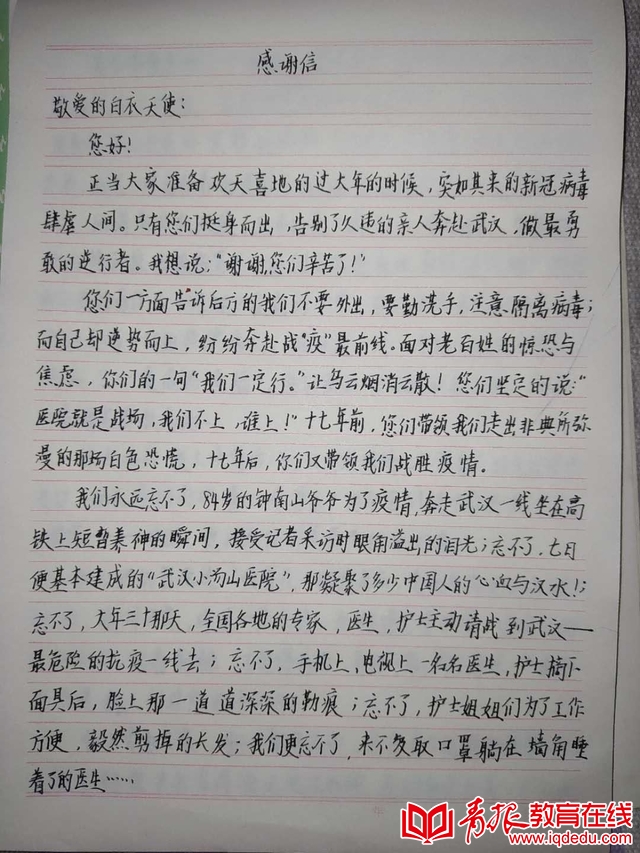 感谢信
敬爱的白衣天使：
您好！
正当大家准备欢天喜地的过大年的时候，突如其来的新冠病毒
肆虐人间。只有您们挺身而出，告别了久违的亲人奔赴武汉，做最勇
敢的逆行者。我想说：“谢谢，您们辛苦了！”
您们一方面告诉后方的我们不要外出，要勤洗手，注意隔离病毒；
而自己却逆势而上，纷纷奔赴战“疫”最前线。面对老百姓的惊恐与
焦虑，你们的一句“我们一定行。”让乌云烟消云散！您们坚定的说：“
医院就是战场，我们不上，谁上！”十七年前，您们带领我们走出非典所弥
漫的那场白色恐慌，十七年后，你们又带领我们战胜疫情。
我们永远忘不了，84岁的钟南山爷爷为了疫情，奔走武汉一线坐在高
铁上短暂养神的瞬间，接受记者采访时眼角溢出的泪光；忘不了，七日
便基本建成的“武汉小汤山医院”，那凝聚了多少中国人的心血与汗水！；
忘不了，大年三十那天，全国各地的专家，医生，护士主动请战到武汉——
最危险的抗疫一线去；忘不了，手机上、电视上一名名医生，护士摘下
面具后，脸上那一道道深深的勒痕；忘不了，护士姐姐们为了工作
方便，毅然剪掉的长发；我们更忘不了，来不及取口罩躺在墙角睡
着了的医生……
青报教育在线
www.iqdedu.com